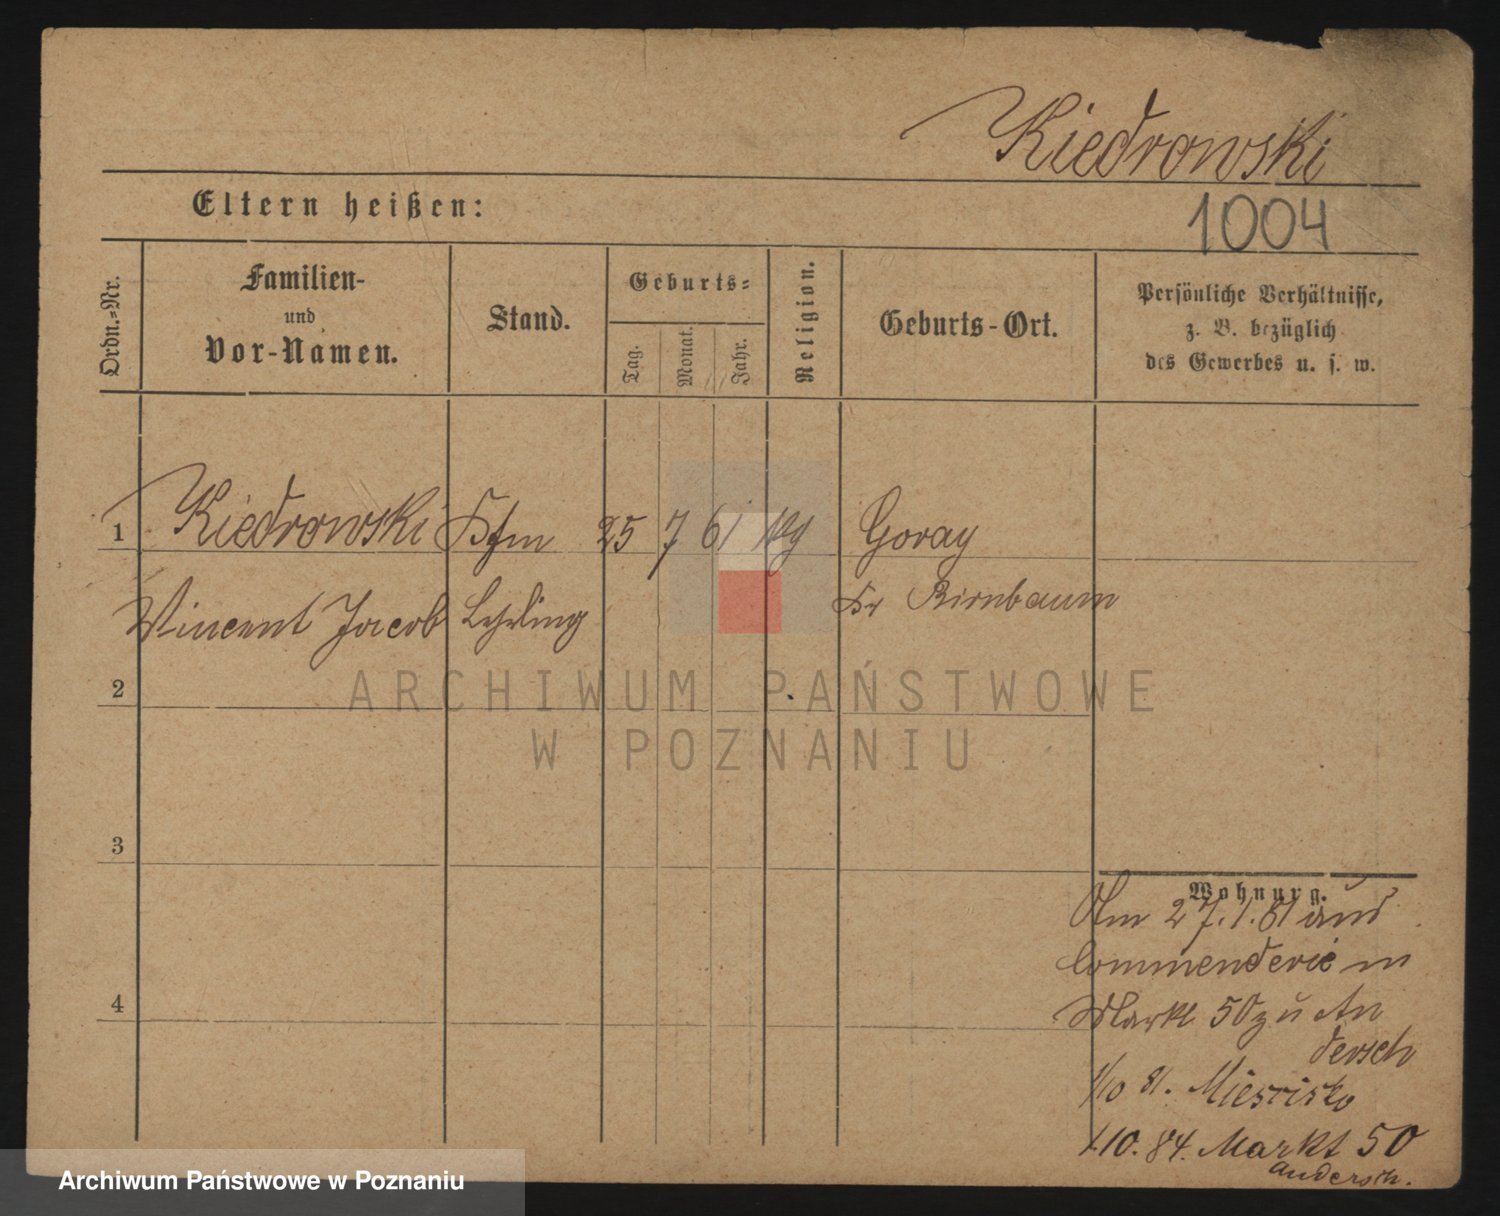 Kiedrowski
Eltern heißen:
1004
Ordn.=Nr.
Familien-
und
Vor-Namen.
Stand.
Geburts=
Tag.
Monat.
Jahr.
Religion.
Geburts-Ort.
Persönliche Verhältnisse,
z. B. bezüglich
des Gewerbes u. s. w.
1 Kiedrowski Kfm 25 7 61 Goray
Vincent Jacob Lehrling Kr Birnbaum
2
ARCHIWUM PAŃSTWOWE
W POZNANIU
3
Wohnung.
Am 27.1.81 aus
Commenderie in
4
Markt 50 zu An
dersch
1/10 81. Miescisko
1.10.84. Markt 50
Andersch.
Archiwum Państwowe w Poznaniu